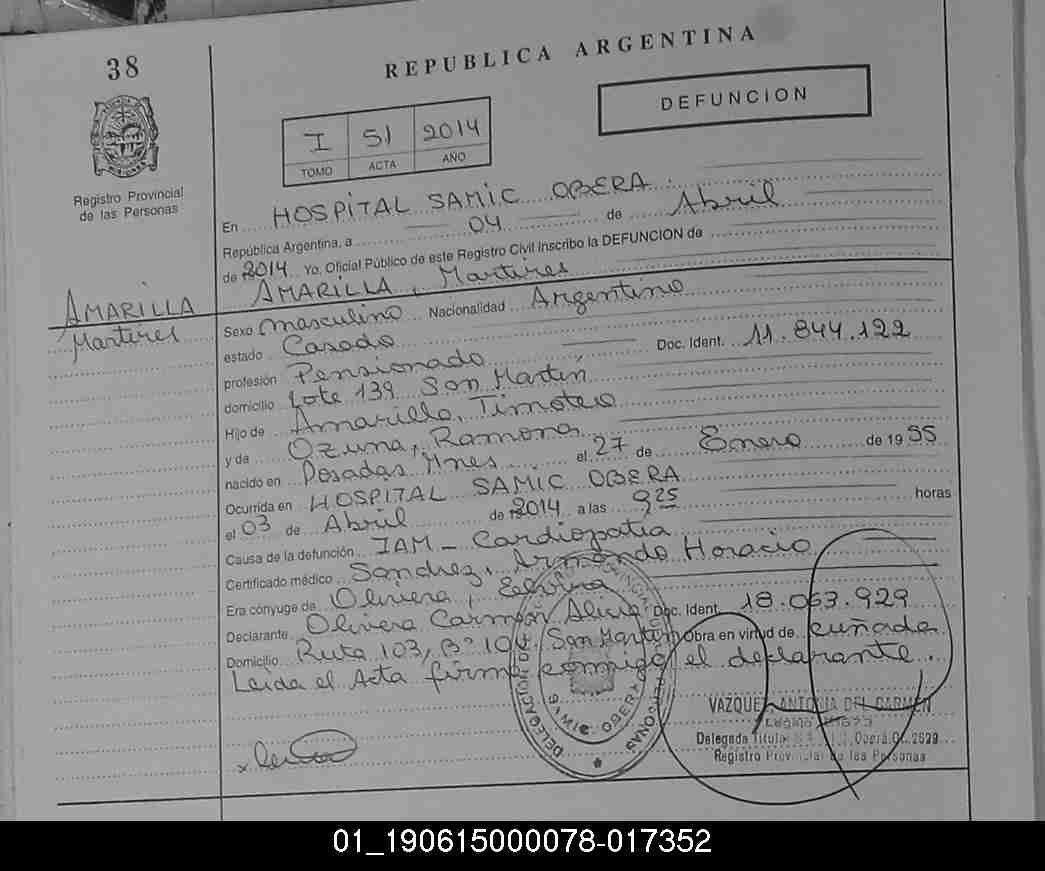 38
REPUBLICA ARGENTINA
DEFUNCION
I 51 2014
TOMO ACTA AÑO
Registro Provincial
de las Personas
En HOSPITAL SAMIC OBERA
República Argentina, a 04 de Abril
de 2014 Yo, Oficial Público de este Registro Civil Inscribo la DEFUNCION de
AMARILLA, Martires
AMARILLA
Martires
Sexo masculino Nacionalidad Argentino
estado Casado
profesión Pensionado Doc. Ident. 11.844.122
domicilio Lote 139 San Martín
Hijo de Amarilla, Timoteo
y de Ozuna, Ramona
nacido en Posadas Mnes el 27 de Enero de 1955
Ocurrida en HOSPITAL SAMIC OBERA
el 03 de Abril de 2014 a las 9 25 horas
Causa de la defunción IAM - Cardiopatia
Certificado médico Sanchez, Armando Horacio
Era cónyuge de Olivera,
Declarante Olivera Carmen Alicia Doc. Ident. 18.063.929
Domicilio Ruta 103, B° 104 San Martin Obra en virtud de cuñada
Leida el Acta firma conmigo el declarante.
VAZQUEZ ANTONIA DEL CARMEN
Delegada Titular Oberá Of. 2929
Registro Provincial de las Personas
01_190615000078-017352